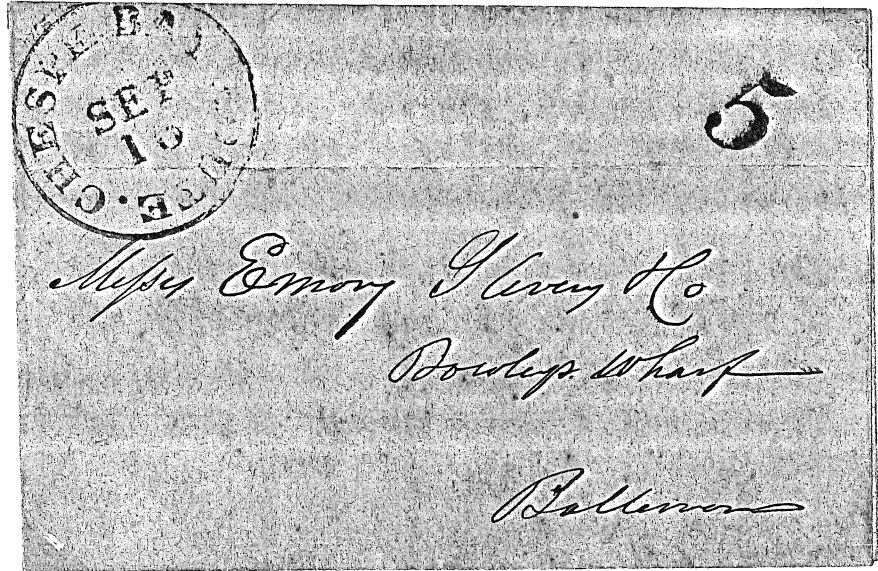 CHESPE. BAY ROUTE.
SEP
5
Messrs Emory & Co
Bowlys Wharf
Baltimore